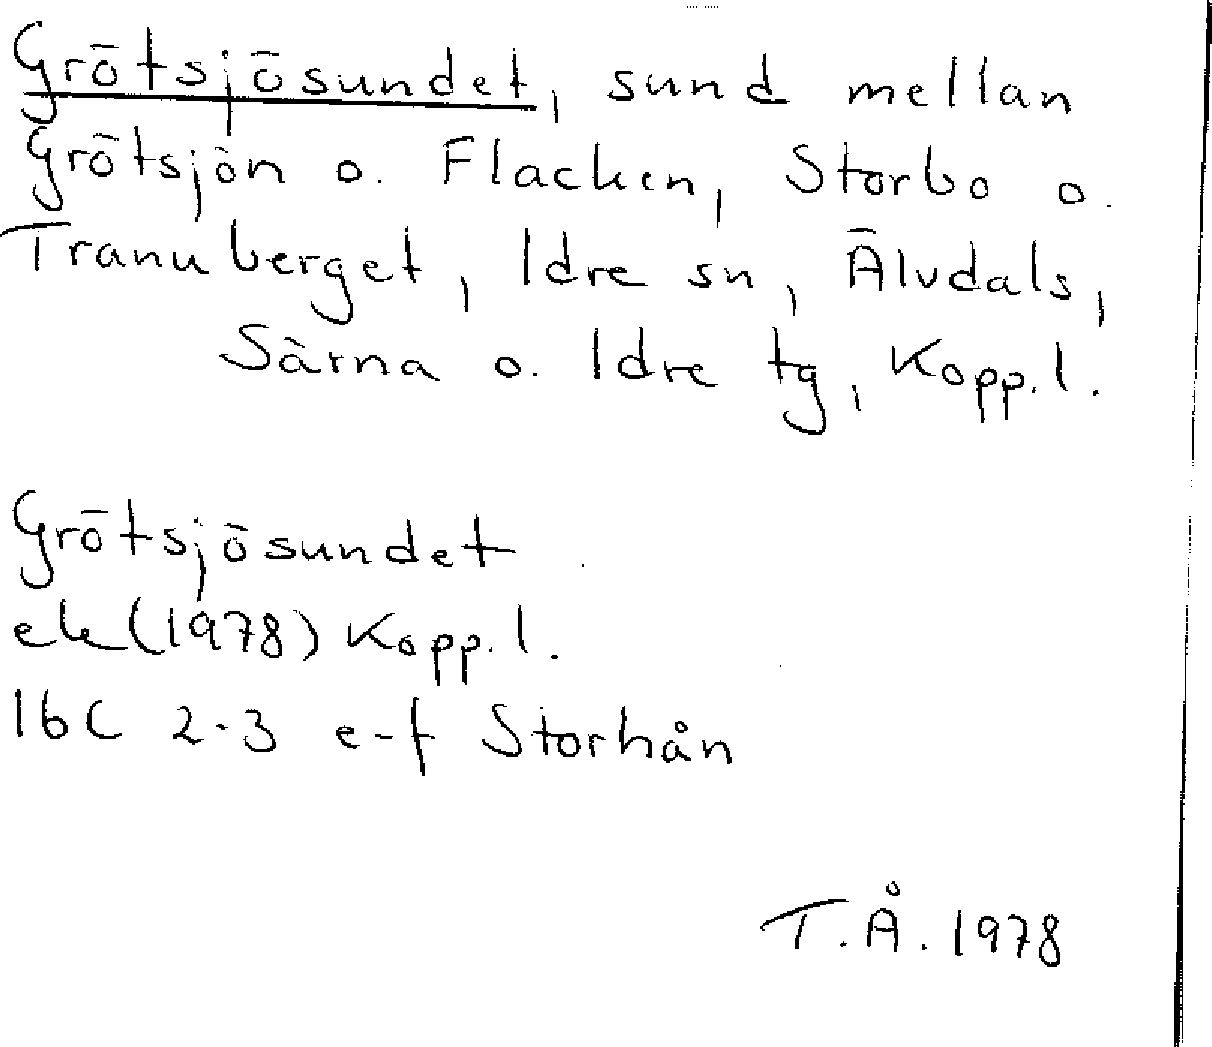 Grötsjösundet, sund mellan
Grötsjön o. Flacken, Storbo o.
Tranuberget, Idre sn, Älvdals,
Särna o. Idre tg, Kopp. l.
Grötsjösundet
ek (1978) Kopp. l.
16C 2-3 e-f Storhån
T.Å. 1978